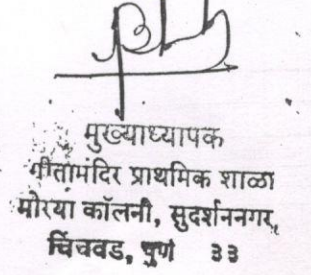 मुख्याध्यापक
गीतामंदिर प्राथमिक शाळा
मोरया कॉलनी, सुदर्शननगर,
चिंचवड, पुणे ३३